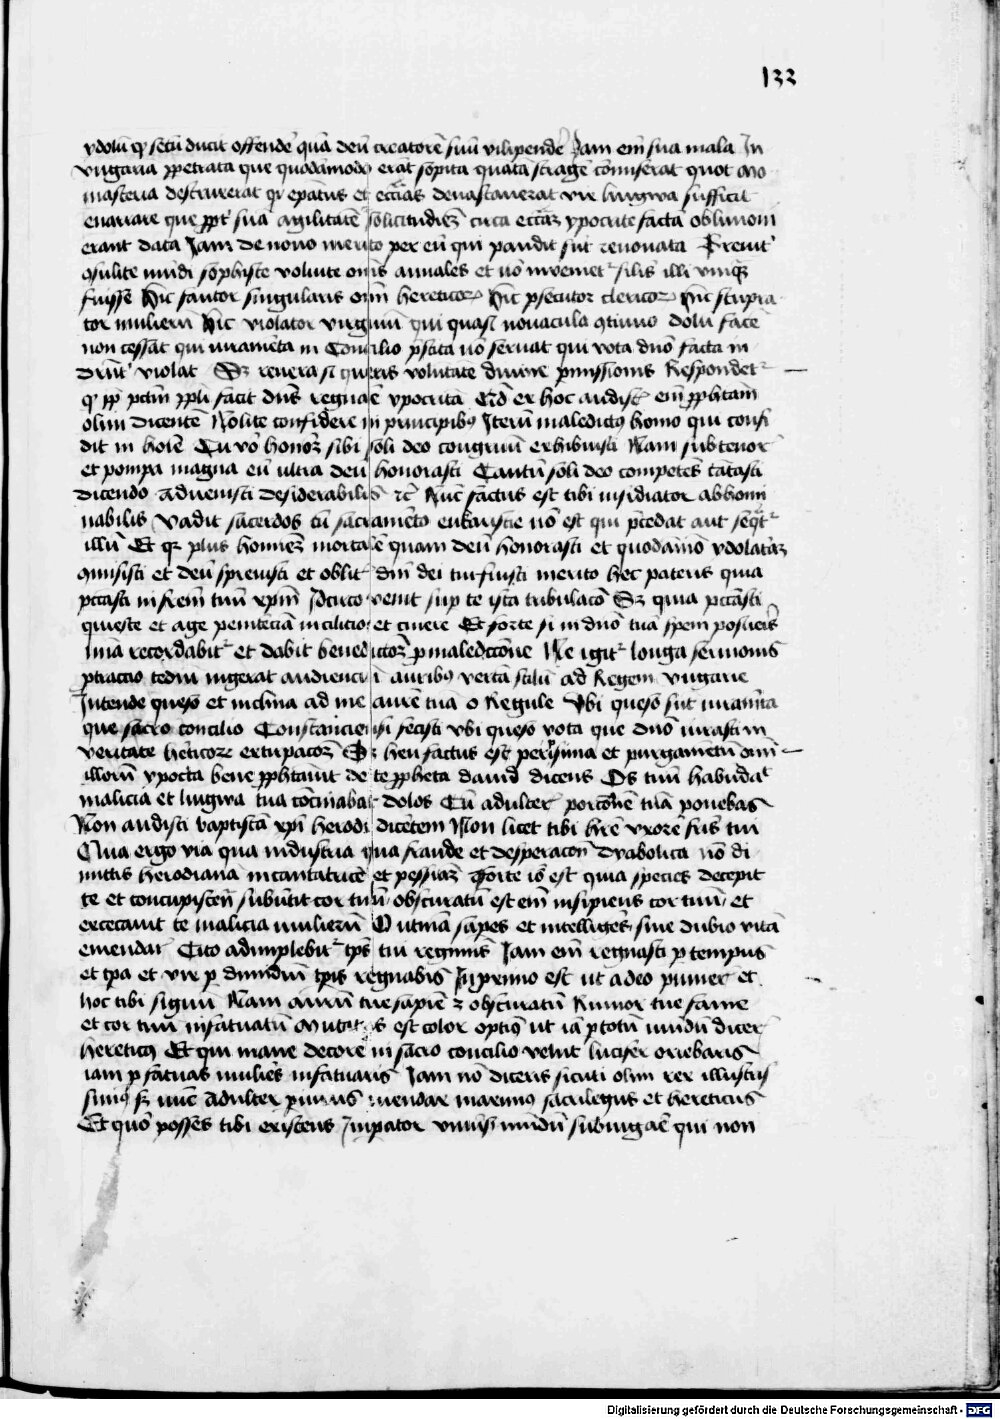 133
ydolū qͥ setū ducit offendē quā deū creatorē suū vilipendē Jam em̄ sua mala In
vngaria ꝑpetrata que quodāmodo erāt sopita quātā stragē cōmiserat quot mo
nasteria destruxerat qͥ epatus et ecciās deuastauerat vix lingwa sufficit
enarrare que ꝓpt' suā agilitatē solicitudinē circa ecciaꝫ ypocrite facta obliuioni
erant data Jam de nouo merito per eū qui pandit sūt renouata
ꝯsulite mūdi sophiste voluite oms annales et nō inveniet~ silis illi vnqꝫ
fuisse Hic fautor singularis om̄ hereticoꝝ Hic ꝑsecutor clericoꝝ Hic stupra
tor mulierū Hic violator virginū qui quasi nouacula ꝯtinuo dolū facē
non cessat qui iuramēta in Concilio p̄stita nō seruat qui vota dno facta in
violat Sꝫ reuera si queris volūtatē diuine ꝑmissionis Respondet~
qͥ ꝓp̄ pctm̄ ppli facit dns regnaē ypocritā ex hoc audist' em̄ ꝓphtam
olim dicentē Nolite confidere in principibꝰ Iterū maledictꝰ homo qui confi
dit in hoīe Tu vo honoꝫ sibi soli deo congruū exhibuisti Nam sub tenor
et pompa magna eū ultra deū honorasti Cantū soli deo competēs cātasti
dicendo aduenisti desiderabilis ⁊c̄ Nūc factus est tibi insidiator abhomi
nabilis Vadit sacerdos cū sacramēto eukaristie nō est qui p̄cedat aut seqͣt~
illū Et qꝫ plus hominē mortalē quam deū honorasti et quodāmō ydolatriaꝫ
ꝯmisisti et deū spreuisti et oblit' dni dei tui fuisti merito hec pateris quia
pccasti in frem̄ tuū xpm̄ Jdcirco venit sup te ista tribulacō Sꝫ quia pccāsti
quiesce et age penitēciā in cilicio et cinere Et forte si in dnō tuā spem posueris
recordabit~ et dabit benedictōꝫ ꝓ maledccōne Ne igit~ longa sermonis
ꝓtractio tediū ingerat audiencii auribꝰ vertā stilū ad Regem vngarie
Intende queso et inclina ad me aurē tuā o Regule Vbi queso sūt iuramēta
que sacro concilio Constanciensi fecisti vbi queso vota que dnō iurasti in
veritate heticoꝫ extirpacōꝫ Sꝫ heu factus est et purgamentū om̄
illorū ypocta bene ꝓphtauit de te ꝓpheta dauid dicens Os tuū habūdat
malicia et lingwa tua cōcinabat dolos Cū adulter porcōnē tuā ponebas
Non audisti baptistā xpi herodi dicētem Non licet tibi hrē vxorē fris tui
Qua ergo via qua industria qua fraude et desperacon dyabolica nō di
mittis herodianā incantatricē et pessimaꝫ Forte iō est quia species decepit
te et concupiscen subūtit cor tuū obscuratū est em̄ insipiens cor tuū et
excecauit te malicia mulierū O utinā sapes et intelligēs sine dubio vitā
emendar' Cito adimplebit~ tps tui regiminis Jam em̄ regnasti ꝑ tempus
et tpa et vix ꝑ dimidiū tpis regnabis Inprimo est ut adeo punier' et
hoc tibi signū Nam aurū tue sapiē ⁊ obscuratū Rumor tue fame
et cor tuū infatuatū Mutatus est color optiꝰ ut iā ꝑ totū mūdū dicer'
hereticꝰ Et qui mane decorē in sacro concilio velut lucifer oriebaris
iam ꝑ fatuas mulies infatuaris Jam nō diceris sicuti olim rex illustris
simꝰ sꝫ nūc adulter maximꝰ sacrilegus et hereticus
Et quō posses tibi existens Inꝑator vniūsū mūdū subiugaē qui non
Digitalisierung gefördert durch die Deutsche Forschungsgemeinschaft - DFG